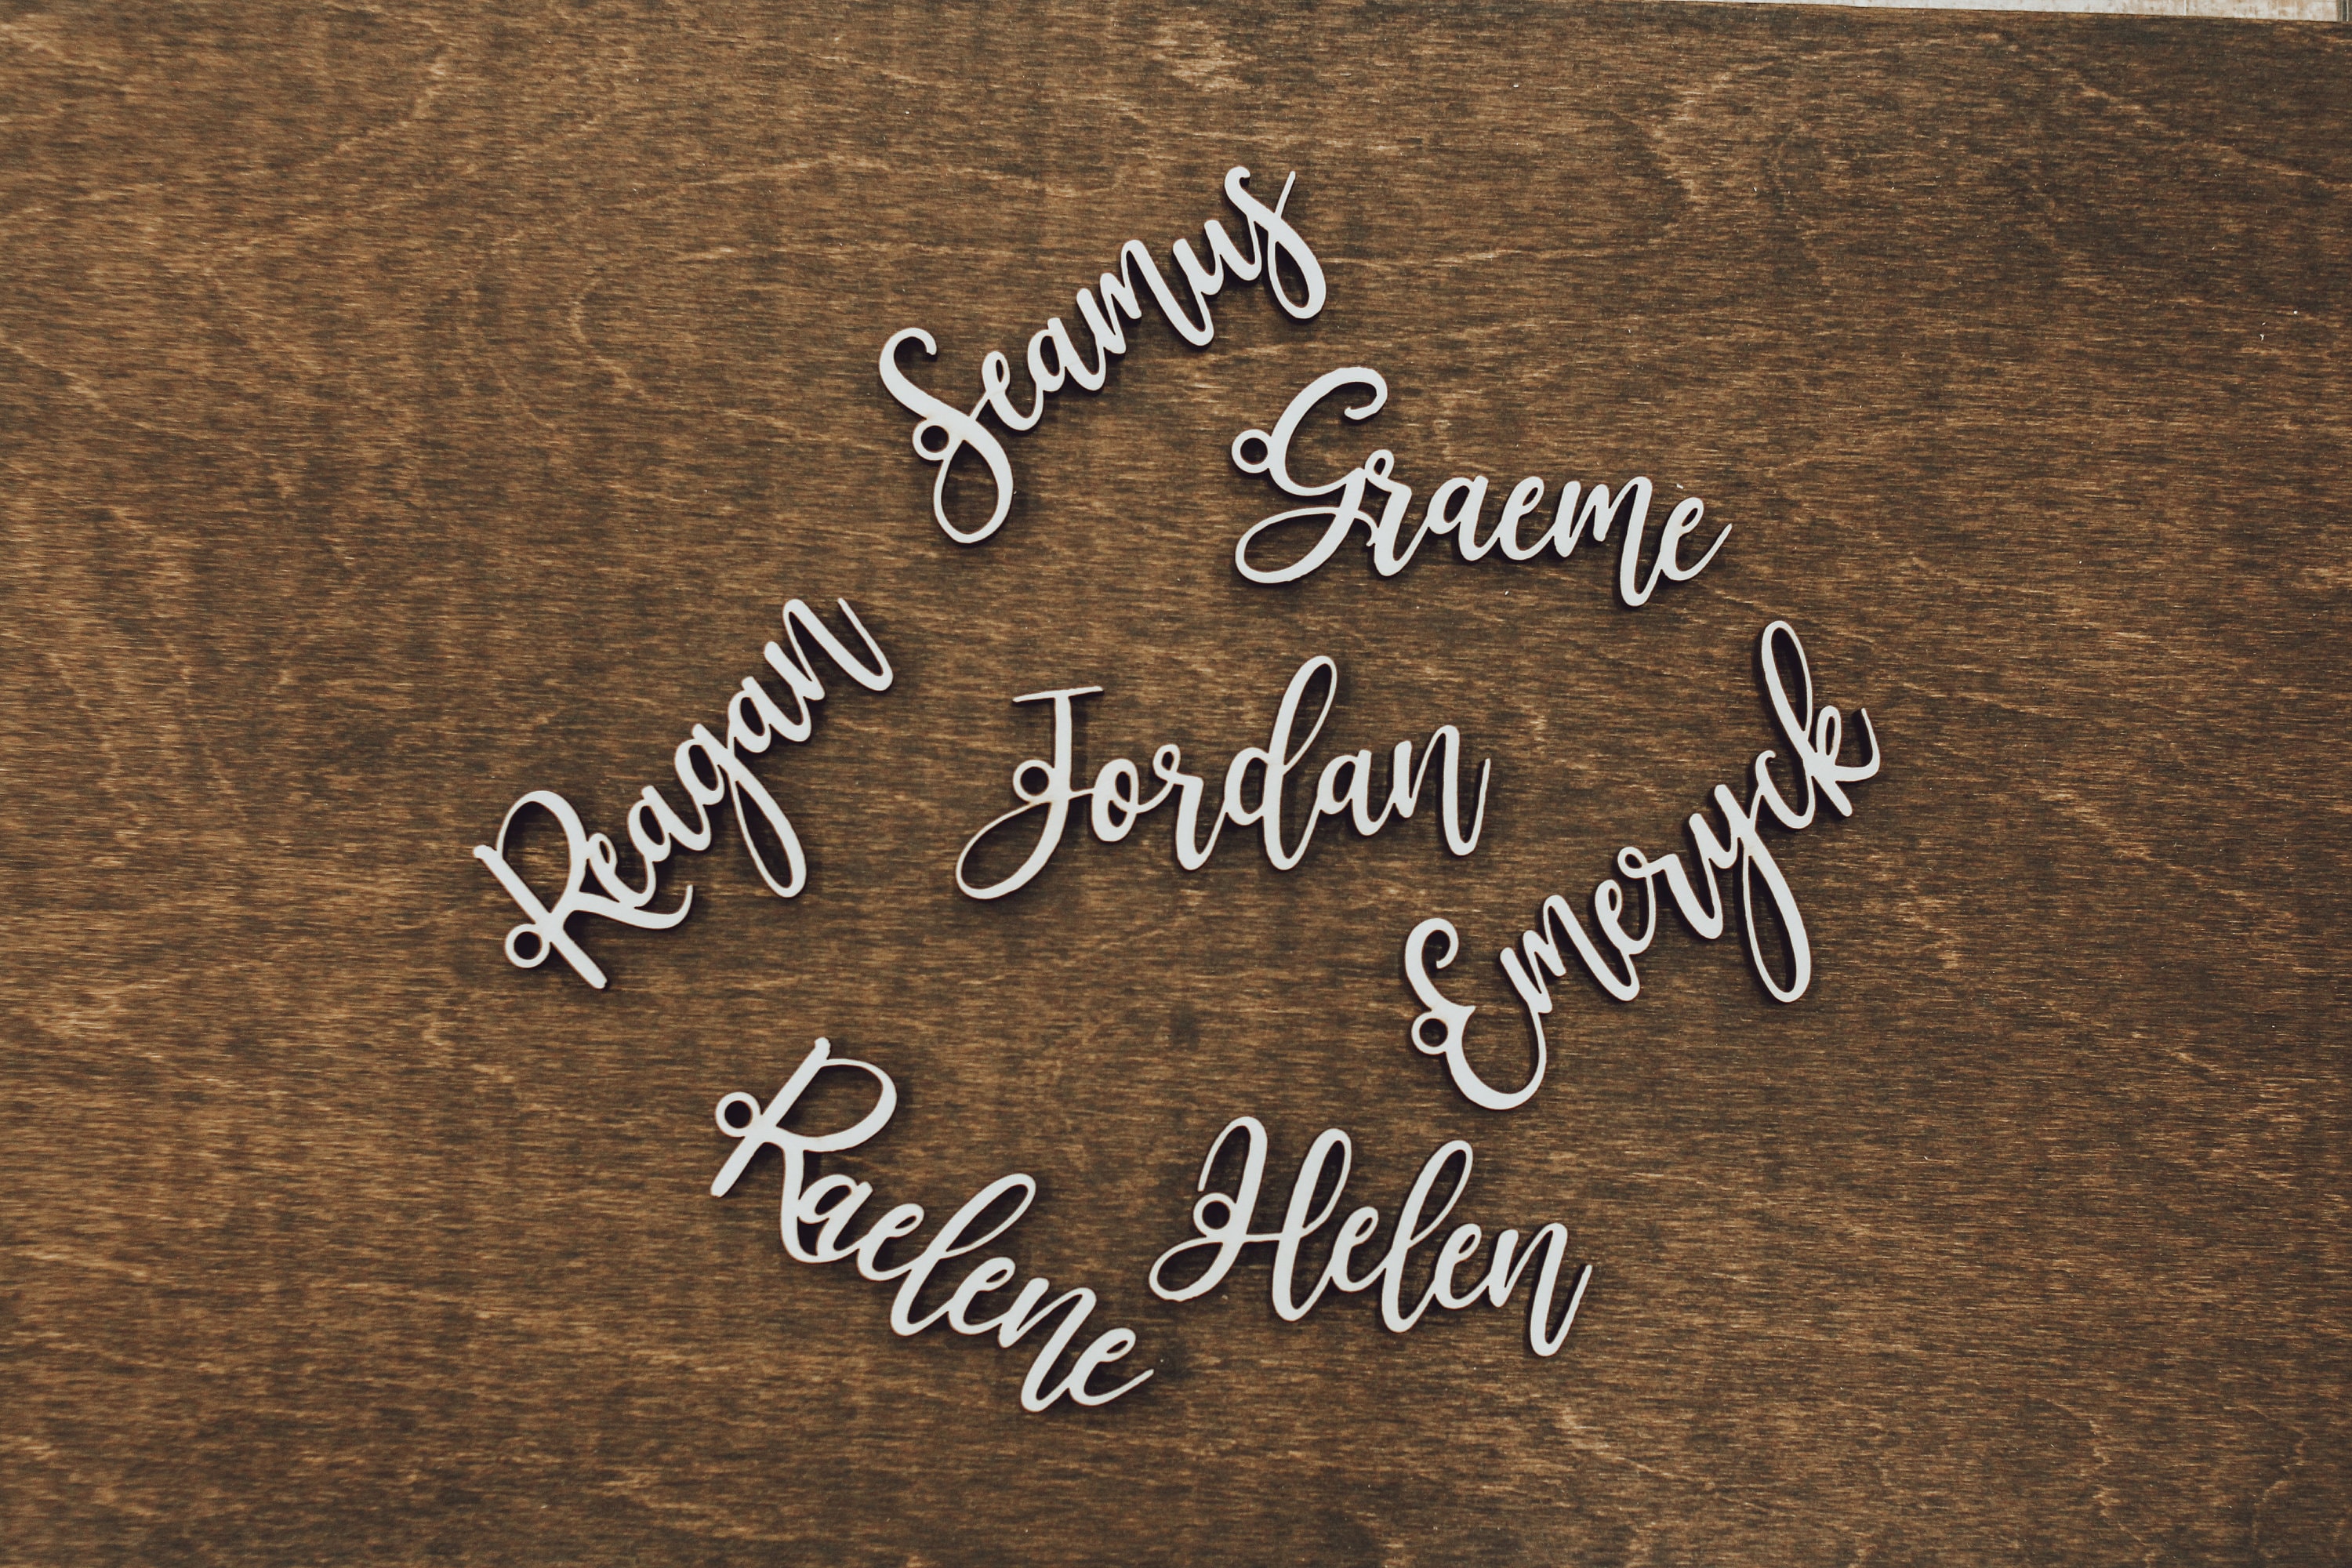 Seamus
Graeme
Reagan
Jordan
Emeryck
Raelene
Helen